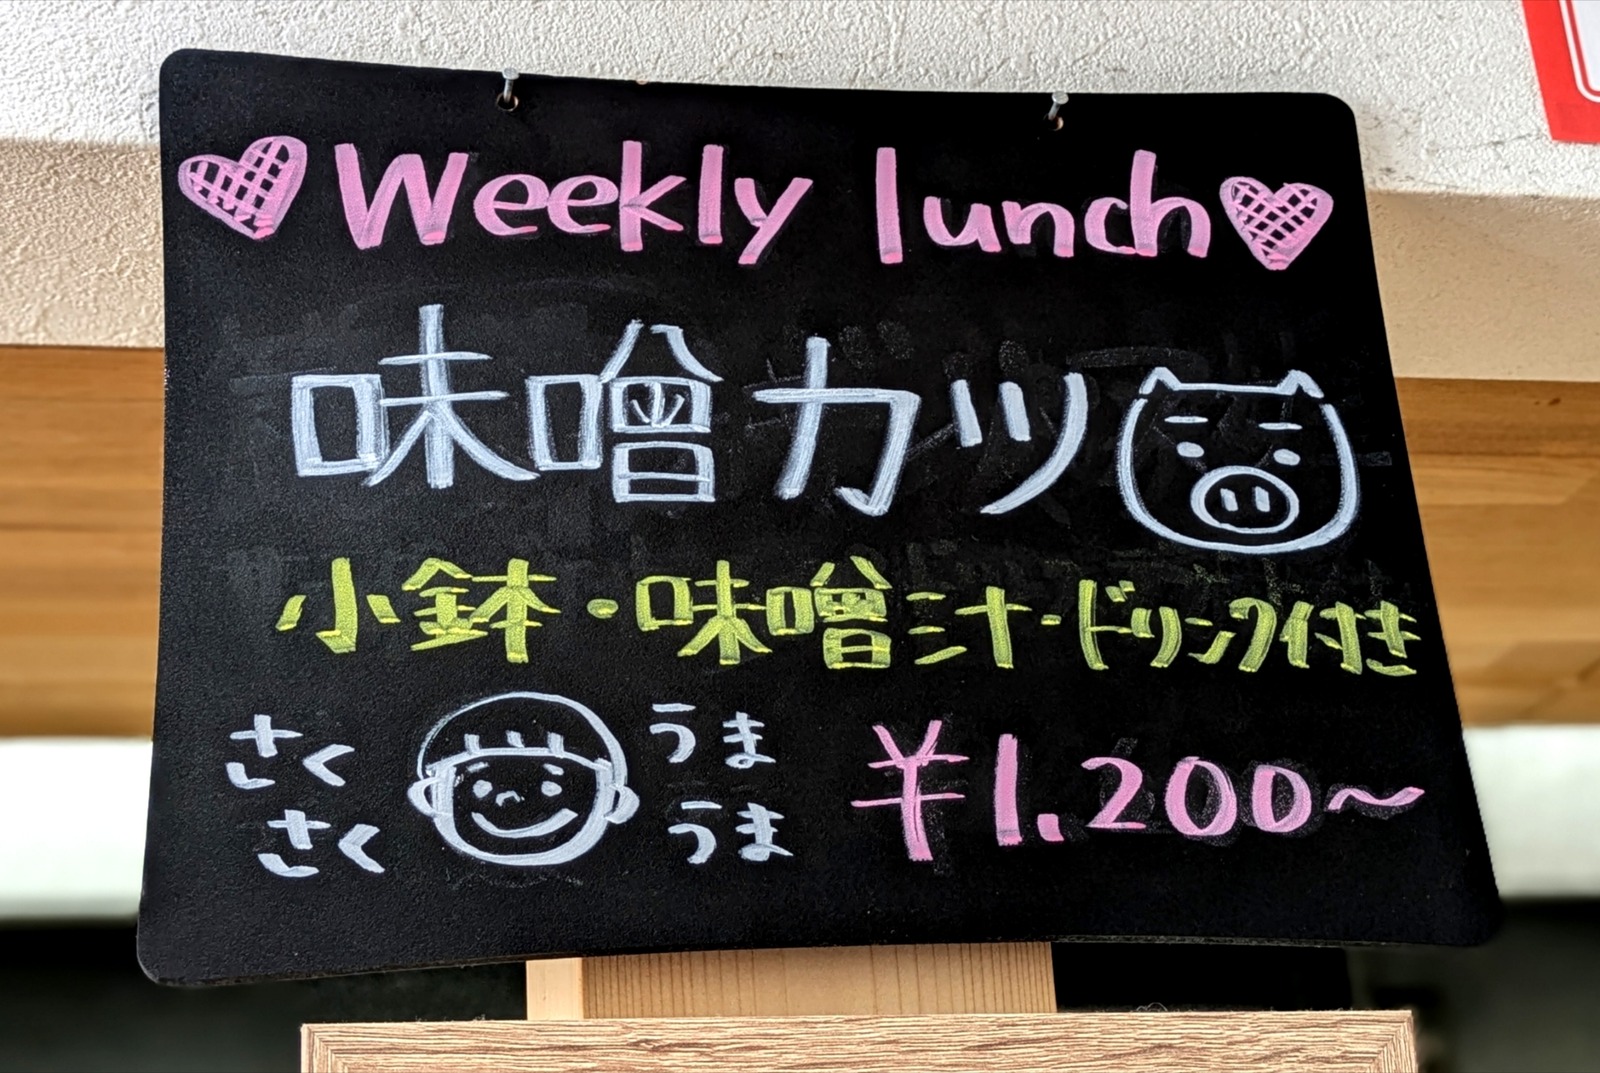 Weekly lunch
味噌カツ
小鉢・味噌汁・ドリンク付き
さく
さく
うま
うま
¥1.200～